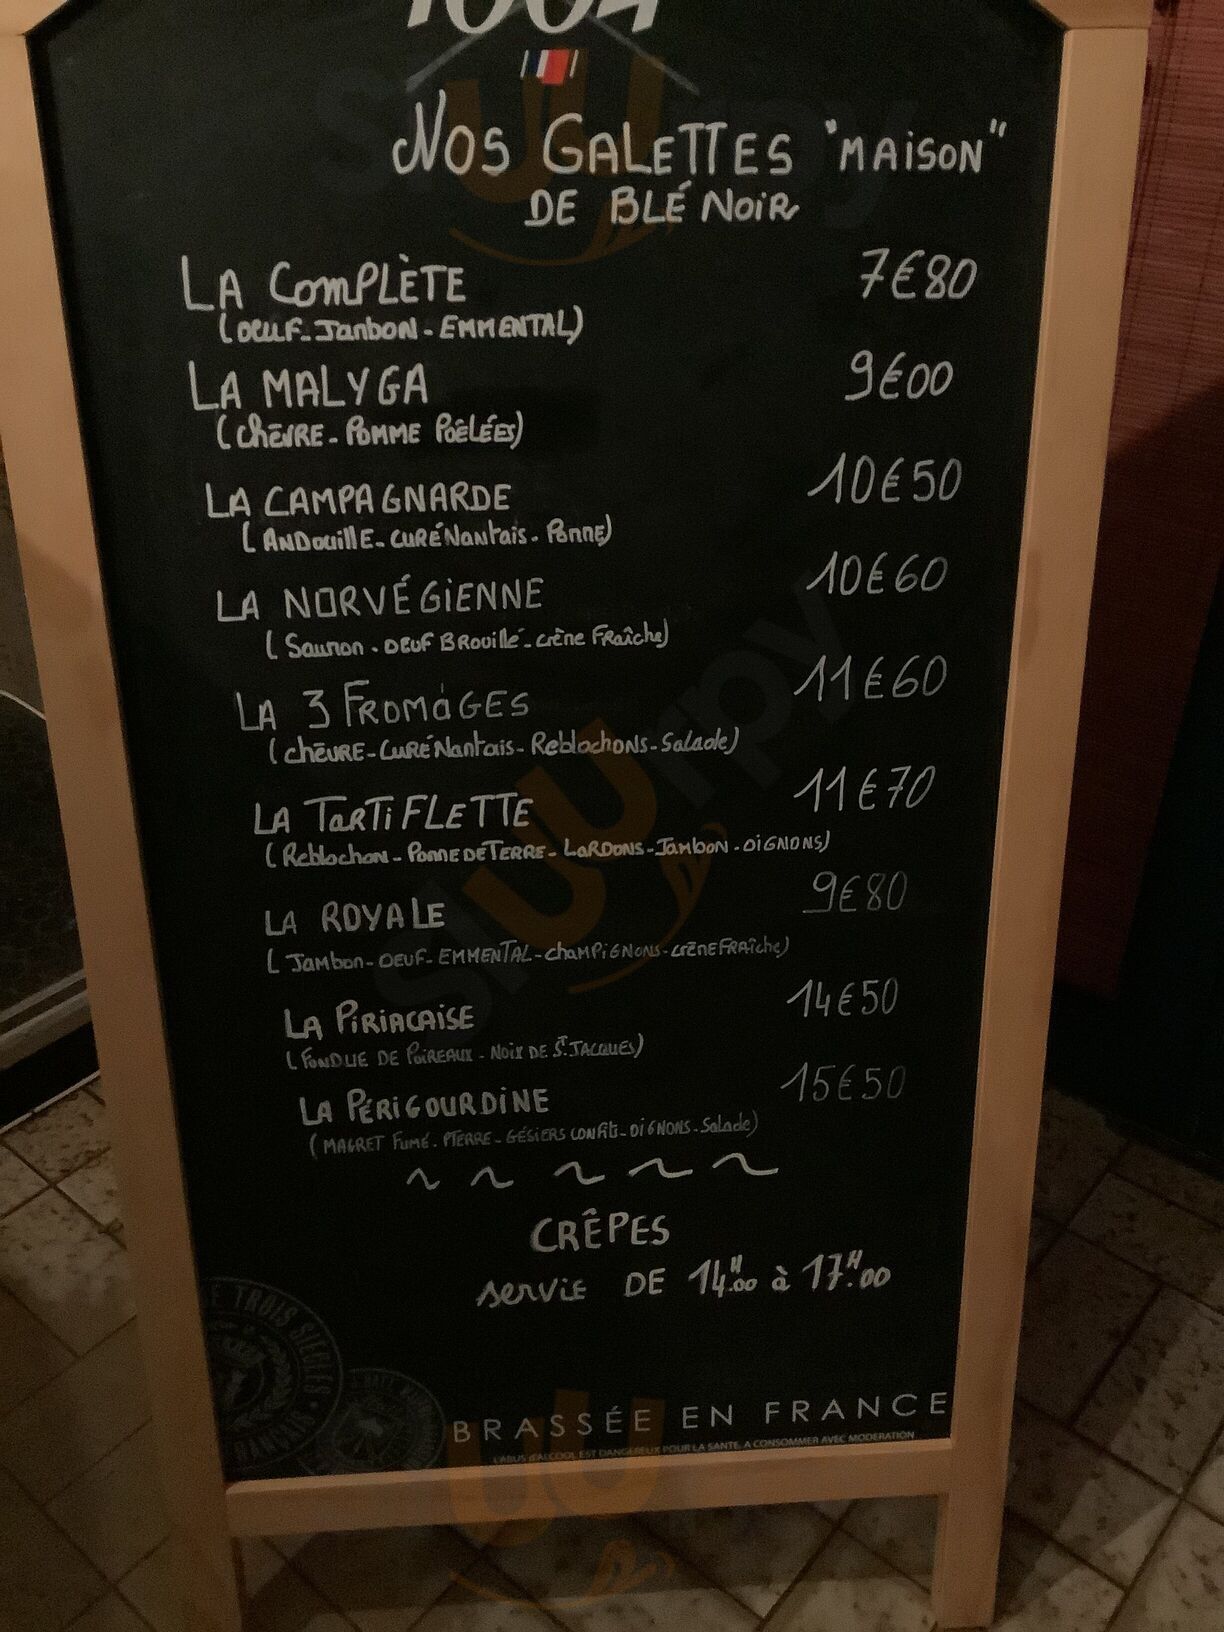 1664
NOS GALETTES "MAISON"
DE BLÉ NOIR
LA COMPLÈTE 7€80
(OEUF - JAMBON - EMMENTAL)
LA MALYGA 9€00
(CHÈVRE - POMME POÊLÉES)
LA CAMPAGNARDE 10€50
(ANDOUILLE - CURÉ NANTAIS - POMME)
LA NORVÉGIENNE 10€60
(SAUMON - OEUF BROUILLÉ - CRÈME FRAÎCHE)
LA 3 FROMAGES 11€60
(CHÈVRE - CURÉ NANTAIS - REBLOCHONS - SALADE)
LA TARTIFLETTE 11€70
(REBLOCHON - POMME DE TERRE - LARDONS - JAMBON - OIGNONS)
LA ROYALE 9€80
(JAMBON - OEUF - EMMENTAL - CHAMPIGNONS - CRÈME FRAÎCHE)
LA PIRIACAISE 14€50
(FONDUE DE POIREAUX - NOIX DE ST JACQUES)
LA PÉRIGOURDINE 15€50
(MAGRET FUMÉ - PTERRE - GÉSIERS CONFITS - OIGNONS - SALADE)
CRÊPES
SERVIE DE 14H00 à 17H00
TROIS SIECLES
BRASSÉE EN FRANCE
L'ABUS D'ALCOOL EST DANGEREUX POUR LA SANTE, A CONSOMMER AVEC MODERATION
sluurpy
sluurpy